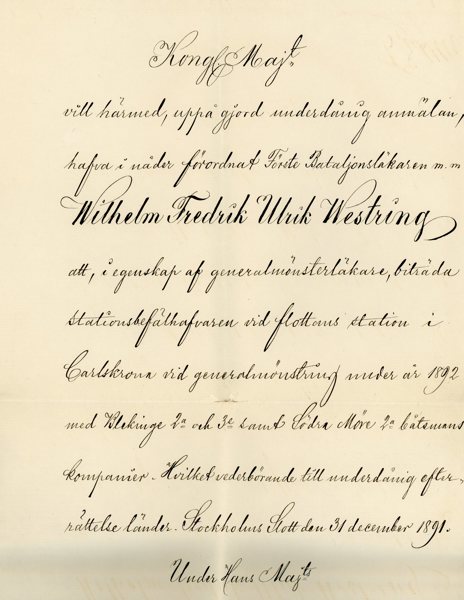 Kongl Majt.
vill härmed, uppå gjord underdånig anmälan,
hafva i nåder förordnat Förste Bataljonsläkaren m. m
Wilhelm Fredrik Ulrik Westring
att, i egenskap af generalmönsterläkare, biträda
stationsbefälhafvaren vid flottans station i
Carlskrona vid generalmönstring under år 1892
med Blekinge 2a och 3e samt Södra Möre 2a båtsmans
kompanier. Hvilket vederbörande till underdånig efter-
rättelse länder. Stockholms Slott den 31 december 1891.
Under Hans Majts